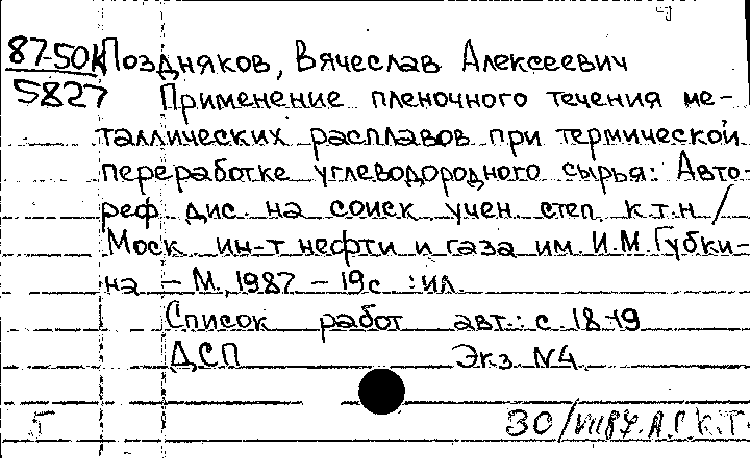 87-50К Поздняков, Вячеслав Алексеевич
5827 Применение пленочного течения ме-
таллических расплавов при термической
переработке углеводородного сырья: Авто-
реф. дис. на соиск учен. степ. к.т.н /
Моск ин-т нефти и газа им. И.М. Губки-
на – М., 1987 – 19с :ил.
Список работ авт.: с 18-19
ДСП Экз N4
5 30/VII87. А.Г. К.Т.